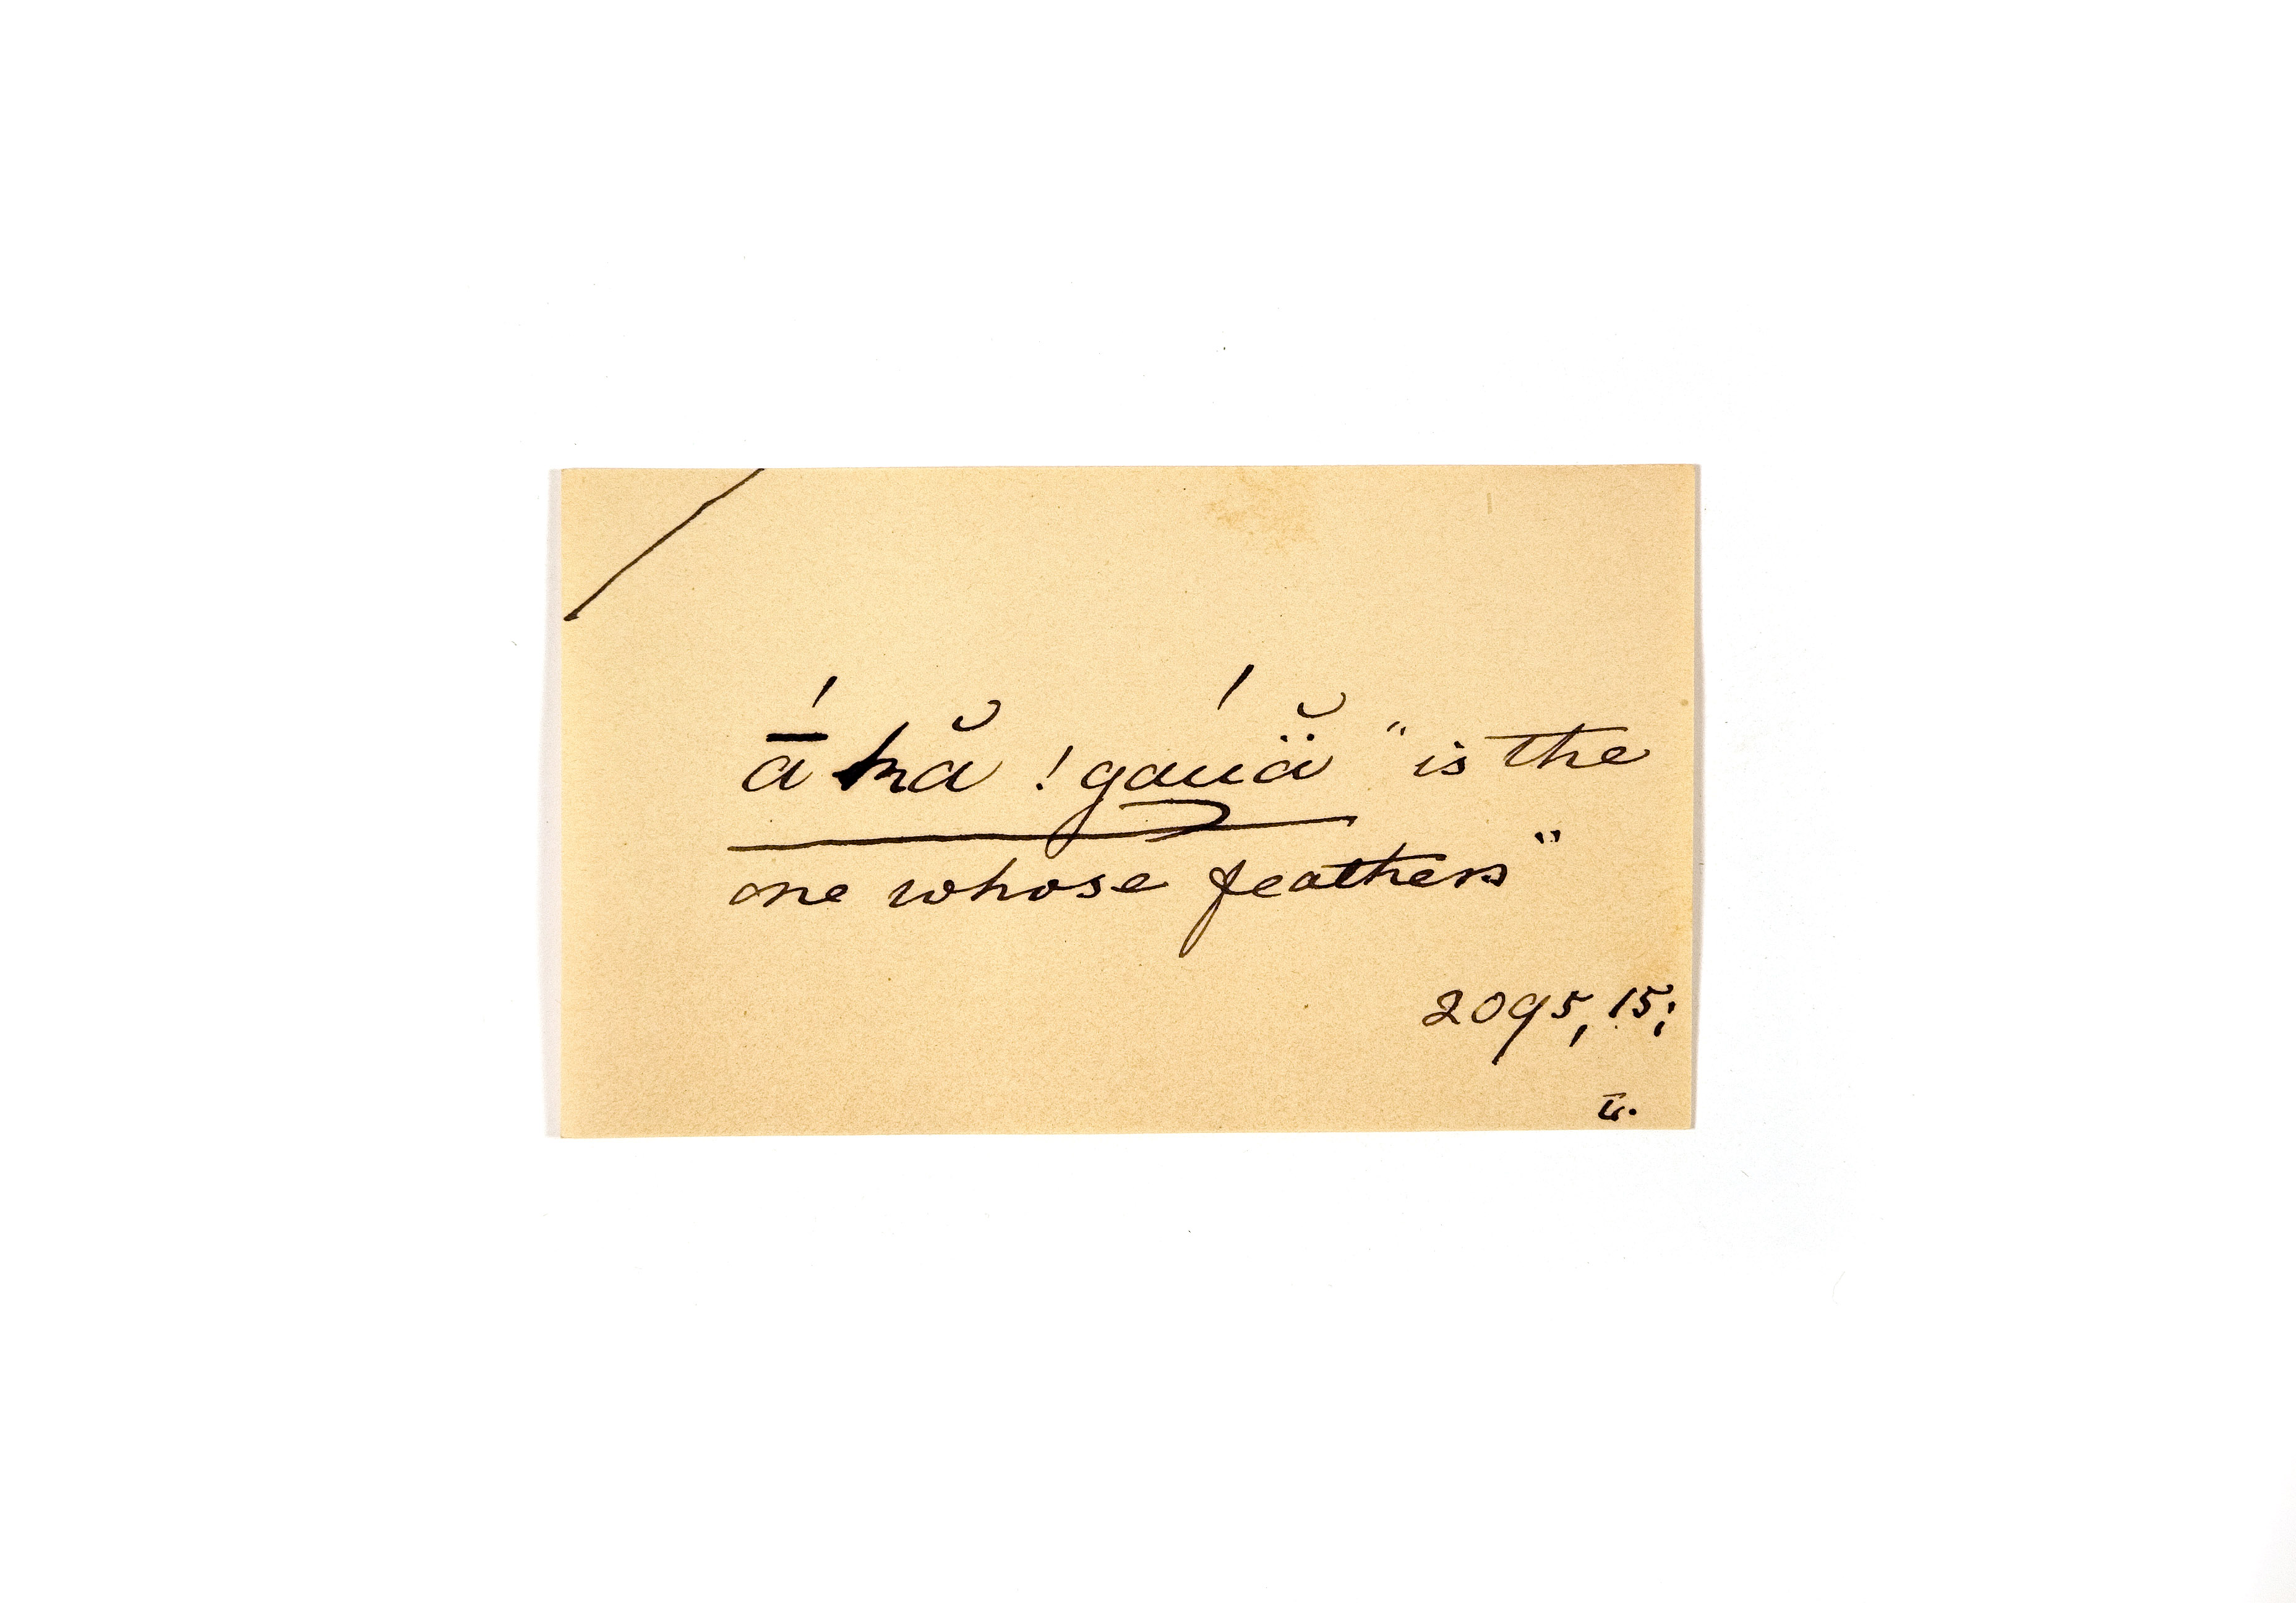 ā́ hă !gaúä̆ " is the
one whose feathers"
2095, 15;